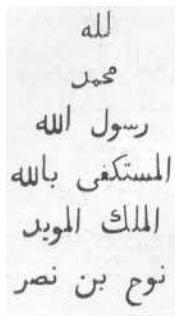 لله
محمد
رسول الله
المستكفى بالله
الملك الموید
نوح بن نصر